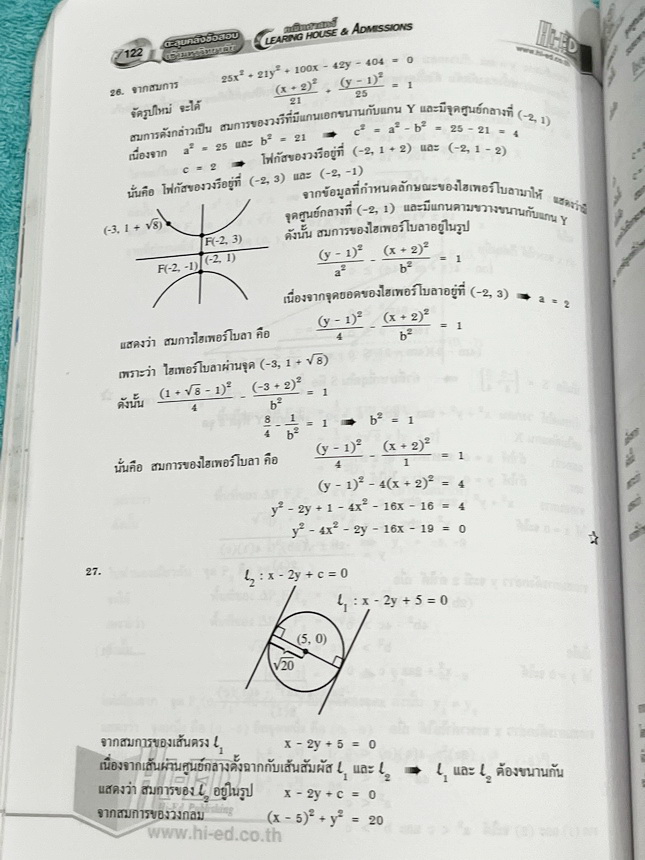 122
ตะลุยคลังข้อสอบ
เข้ามหาวิทยาลัย
คณิตศาสตร์
CLEARING HOUSE & ADMISSIONS
Hi-ED
www.hi-ed.co.th
26. จากสมการ 25x² + 21y² + 100x - 42y - 404 = 0
จัดรูปใหม่ จะได้ (x + 2)²/21 + (y - 1)²/25 = 1
สมการดังกล่าวเป็น สมการของวงรีที่มีแกนเอกขนานกับแกน Y และมีจุดศูนย์กลางที่ (-2, 1)
เนื่องจาก a² = 25 และ b² = 21 ➡ c² = a² - b² = 25 - 21 = 4
c = 2 ➡ โฟกัสของวงรีอยู่ที่ (-2, 1 + 2) และ (-2, 1 - 2)
นั่นคือ โฟกัสของวงรีอยู่ที่ (-2, 3) และ (-2, -1)
จากข้อมูลที่กำหนดลักษณะของไฮเพอร์โบลามาให้ แสดงว่ามี
จุดศูนย์กลางที่ (-2, 1) และมีแกนตามขวางขนานกับแกน Y
ดังนั้น สมการของไฮเพอร์โบลาอยู่ในรูป
(-3, 1 + √8)
F(-2, 3)
(-2, 1)
F(-2, -1)
(y - 1)²/a² - (x + 2)²/b² = 1
เนื่องจากจุดยอดของไฮเพอร์โบลาอยู่ที่ (-2, 3) ➡ a = 2
แสดงว่า สมการไฮเพอร์โบลา คือ (y - 1)²/4 - (x + 2)²/b² = 1
เพราะว่า ไฮเพอร์โบลาผ่านจุด (-3, 1 + √8)
ดังนั้น (1 + √8 - 1)²/4 - (-3 + 2)²/b² = 1
8/4 - 1/b² = 1 ➡ b² = 1
นั่นคือ สมการของไฮเพอร์โบลา คือ (y - 1)²/4 - (x + 2)²/1 = 1
(y - 1)² - 4(x + 2)² = 4
y² - 2y + 1 - 4x² - 16x - 16 = 4
y² - 4x² - 2y - 16x - 19 = 0
27.
ℓ₂ : x - 2y + c = 0
ℓ₁ : x - 2y + 5 = 0
(5, 0)
√20
จากสมการของเส้นตรง ℓ₁ x - 2y + 5 = 0
เนื่องจากเส้นผ่านศูนย์กลางตั้งฉากกับเส้นสัมผัส ℓ₁ และ ℓ₂ ➡ ℓ₁ และ ℓ₂ ต้องขนานกัน
แสดงว่า สมการของ ℓ₂ อยู่ในรูป x - 2y + c = 0
จากสมการของวงกลม (x - 5)² + y² = 20
www.hi-ed.co.th